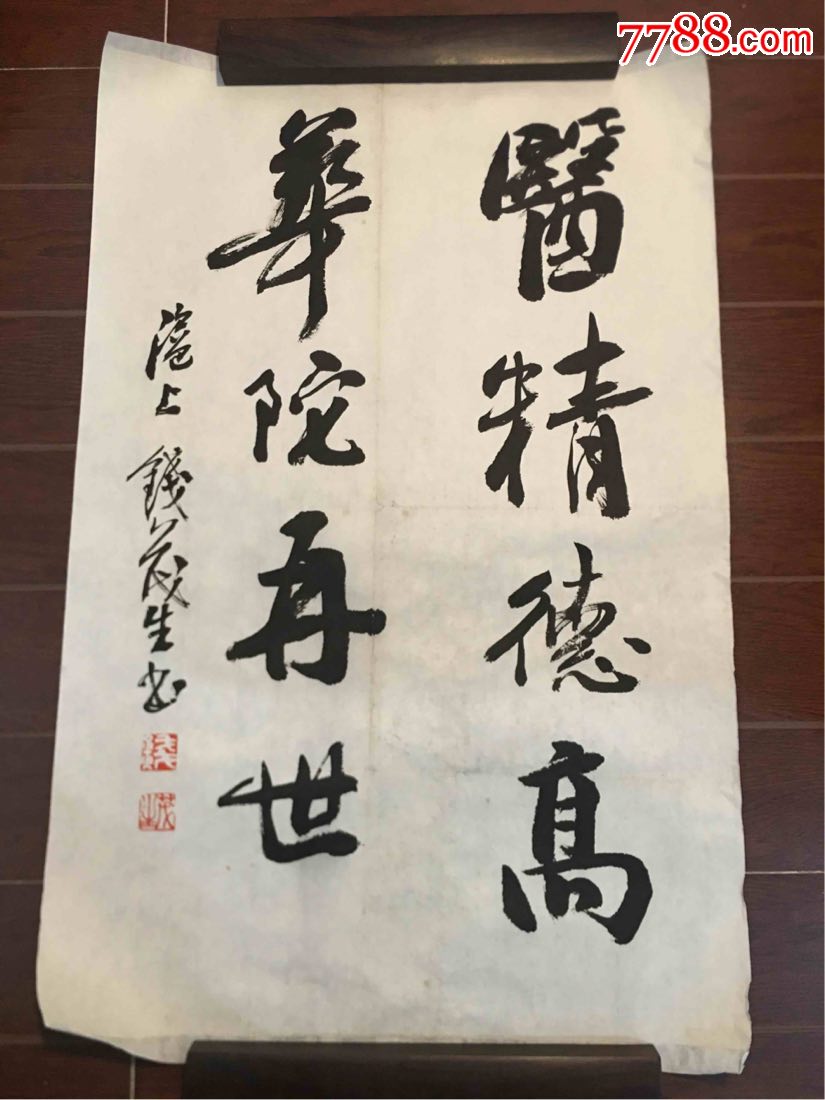 7788.com
醫精德高
華陀再世
滬上 錢茂生书